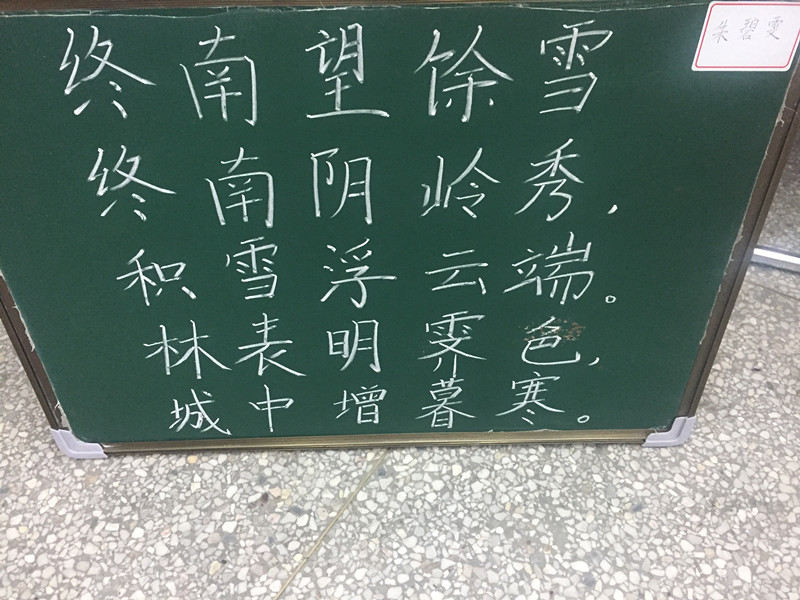 终南望馀雪
终南阴岭秀，
积雪浮云端。
林表明霁色，
城中增暮寒。
朱碧雯